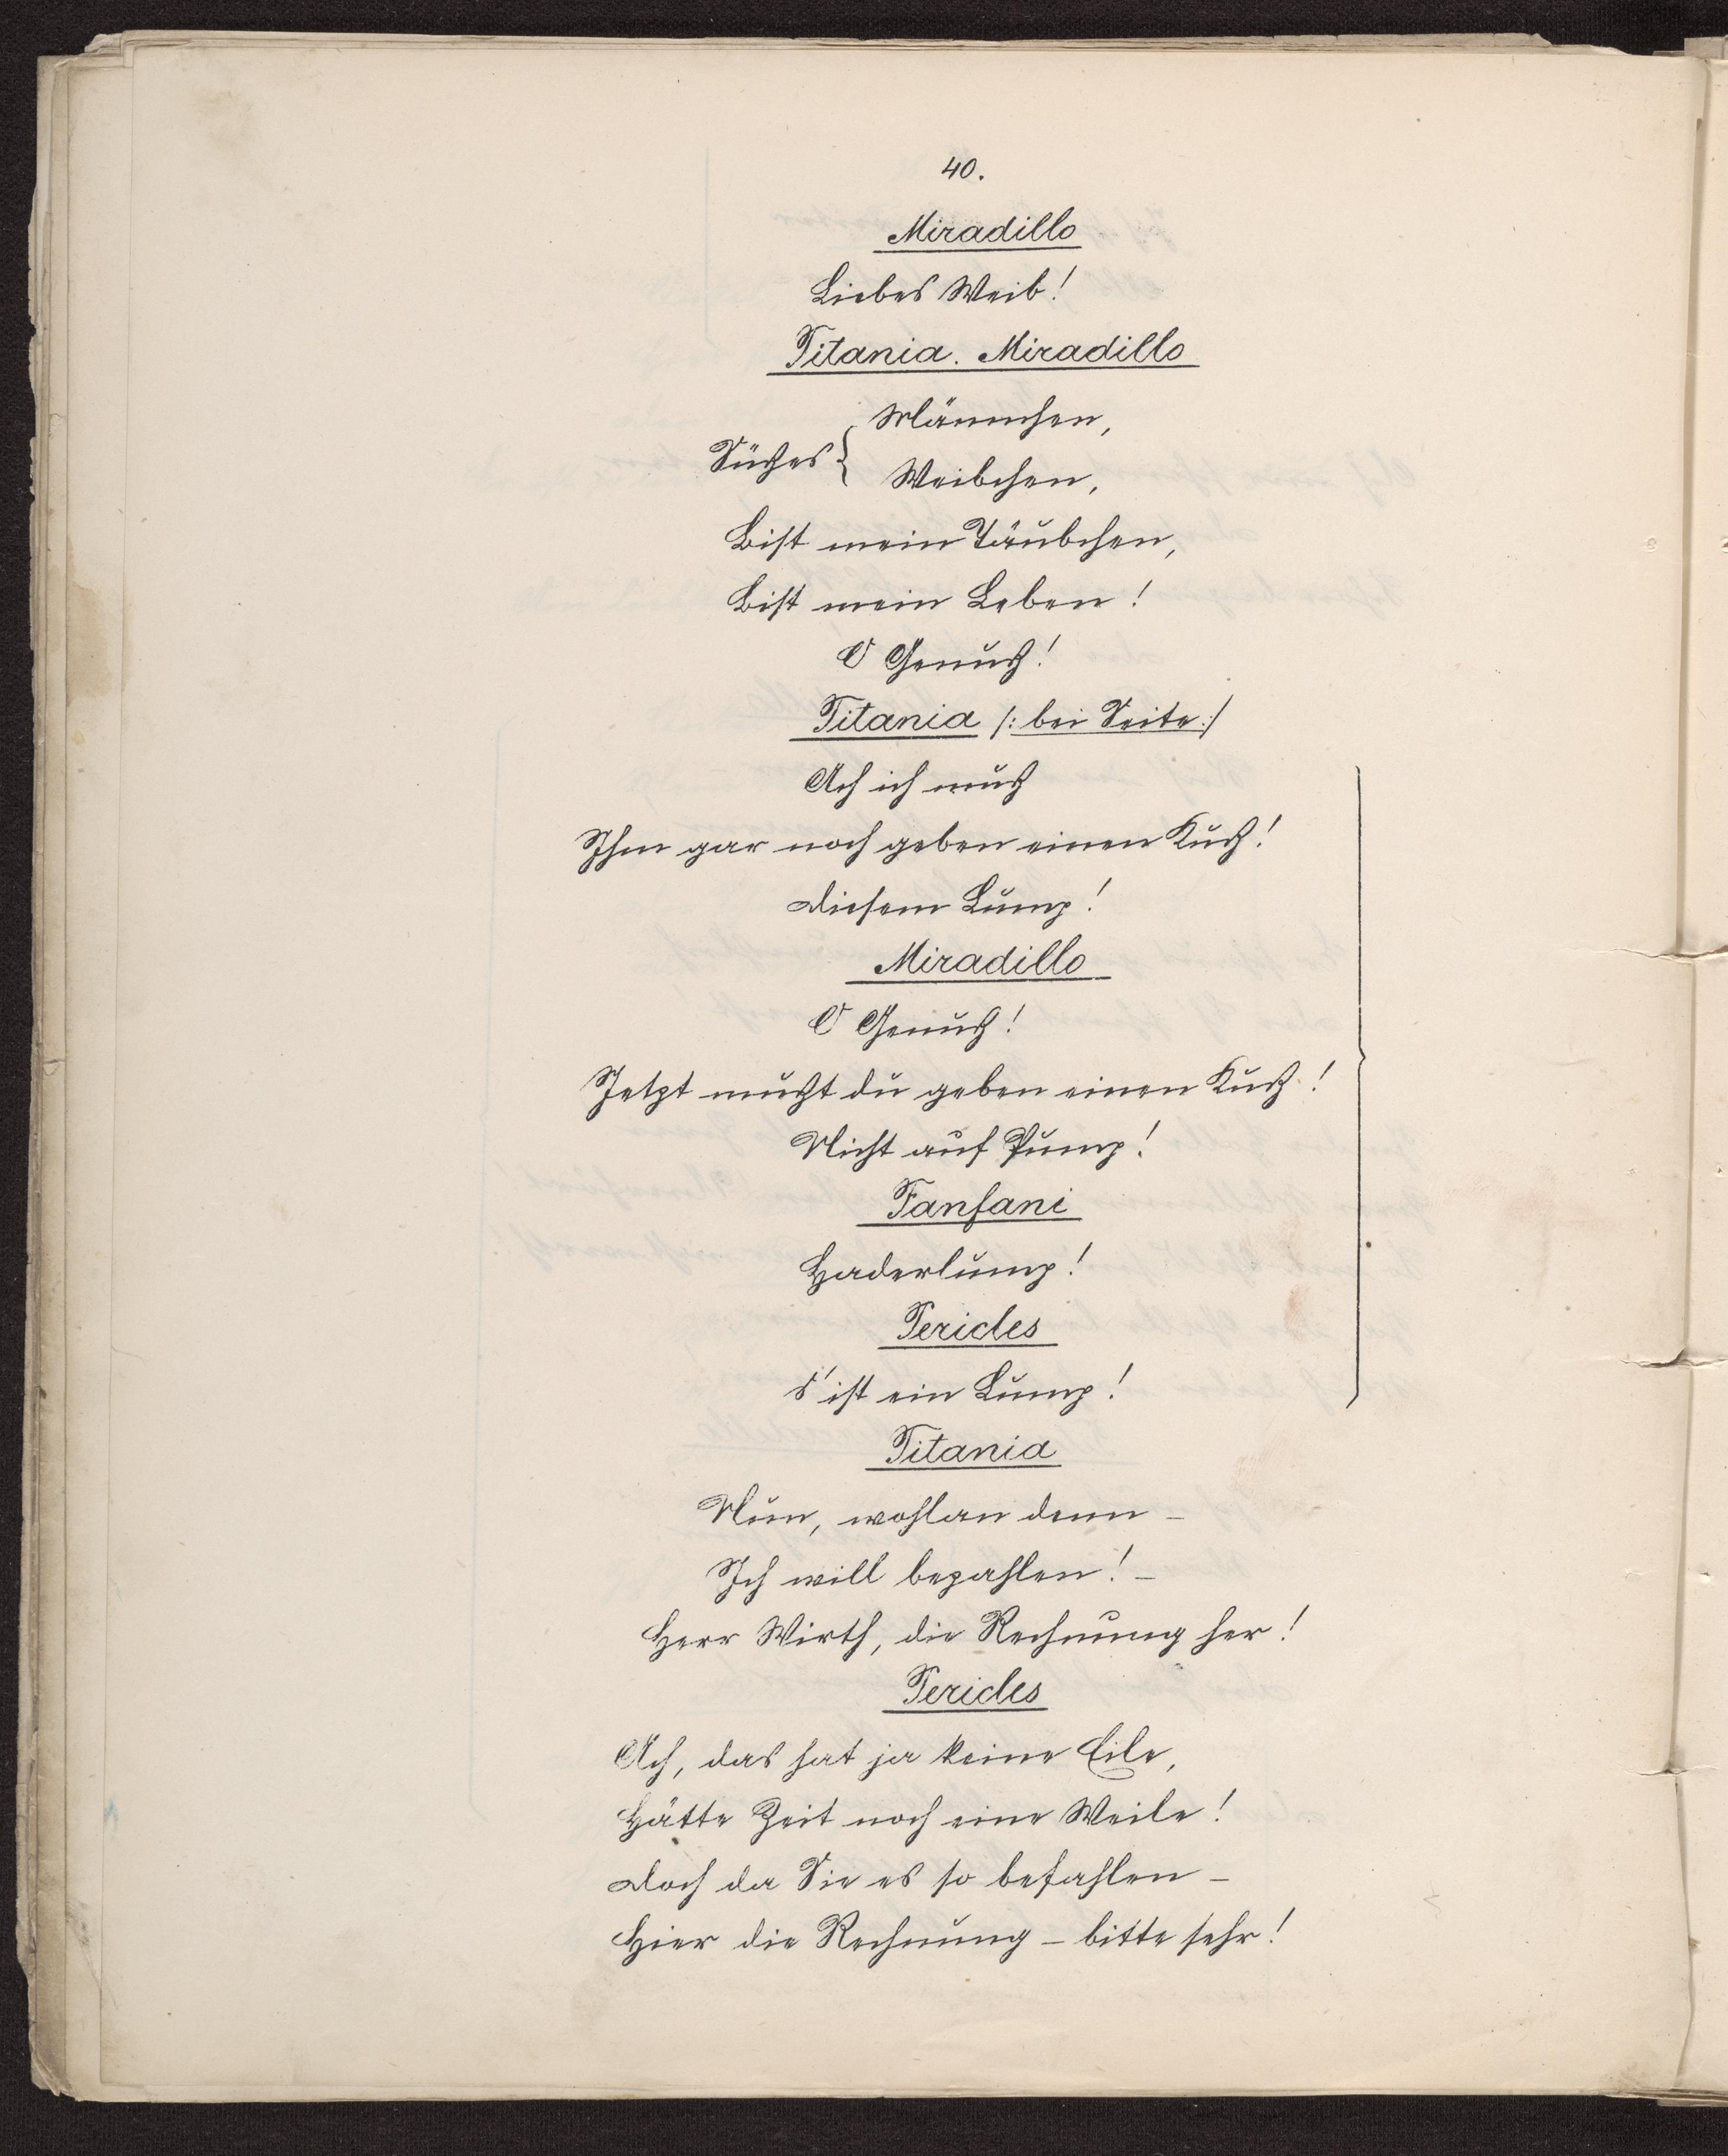 40.
Miradillo
Liebes Weib!
Titania. Miradillo
Männchen,
Süßes {
Weibchen,
Bist mein Täubchen,
Bist mein Leben!
O Genuß!
Titania /: bei Seite :/
Ach ich muß
Ihm gar noch geben einen Kuß!
Diesem Lump!
Miradillo
O Genuß!
Jetzt mußt du geben einen Kuß!
Nicht auf Pump!
Fanfani
Haderlump!
Pericles
s' ist ein Lump!
Titania
Nun, wohlan denn –
Ich will bezahlen! –
Herr Wirth, die Rechnung her!
Pericles
Ach, das hat ja keine Eile,
Hätte Zeit noch eine Weile!
Doch da Sie es so befahlen –
Hier die Rechnung – bitte sehr!